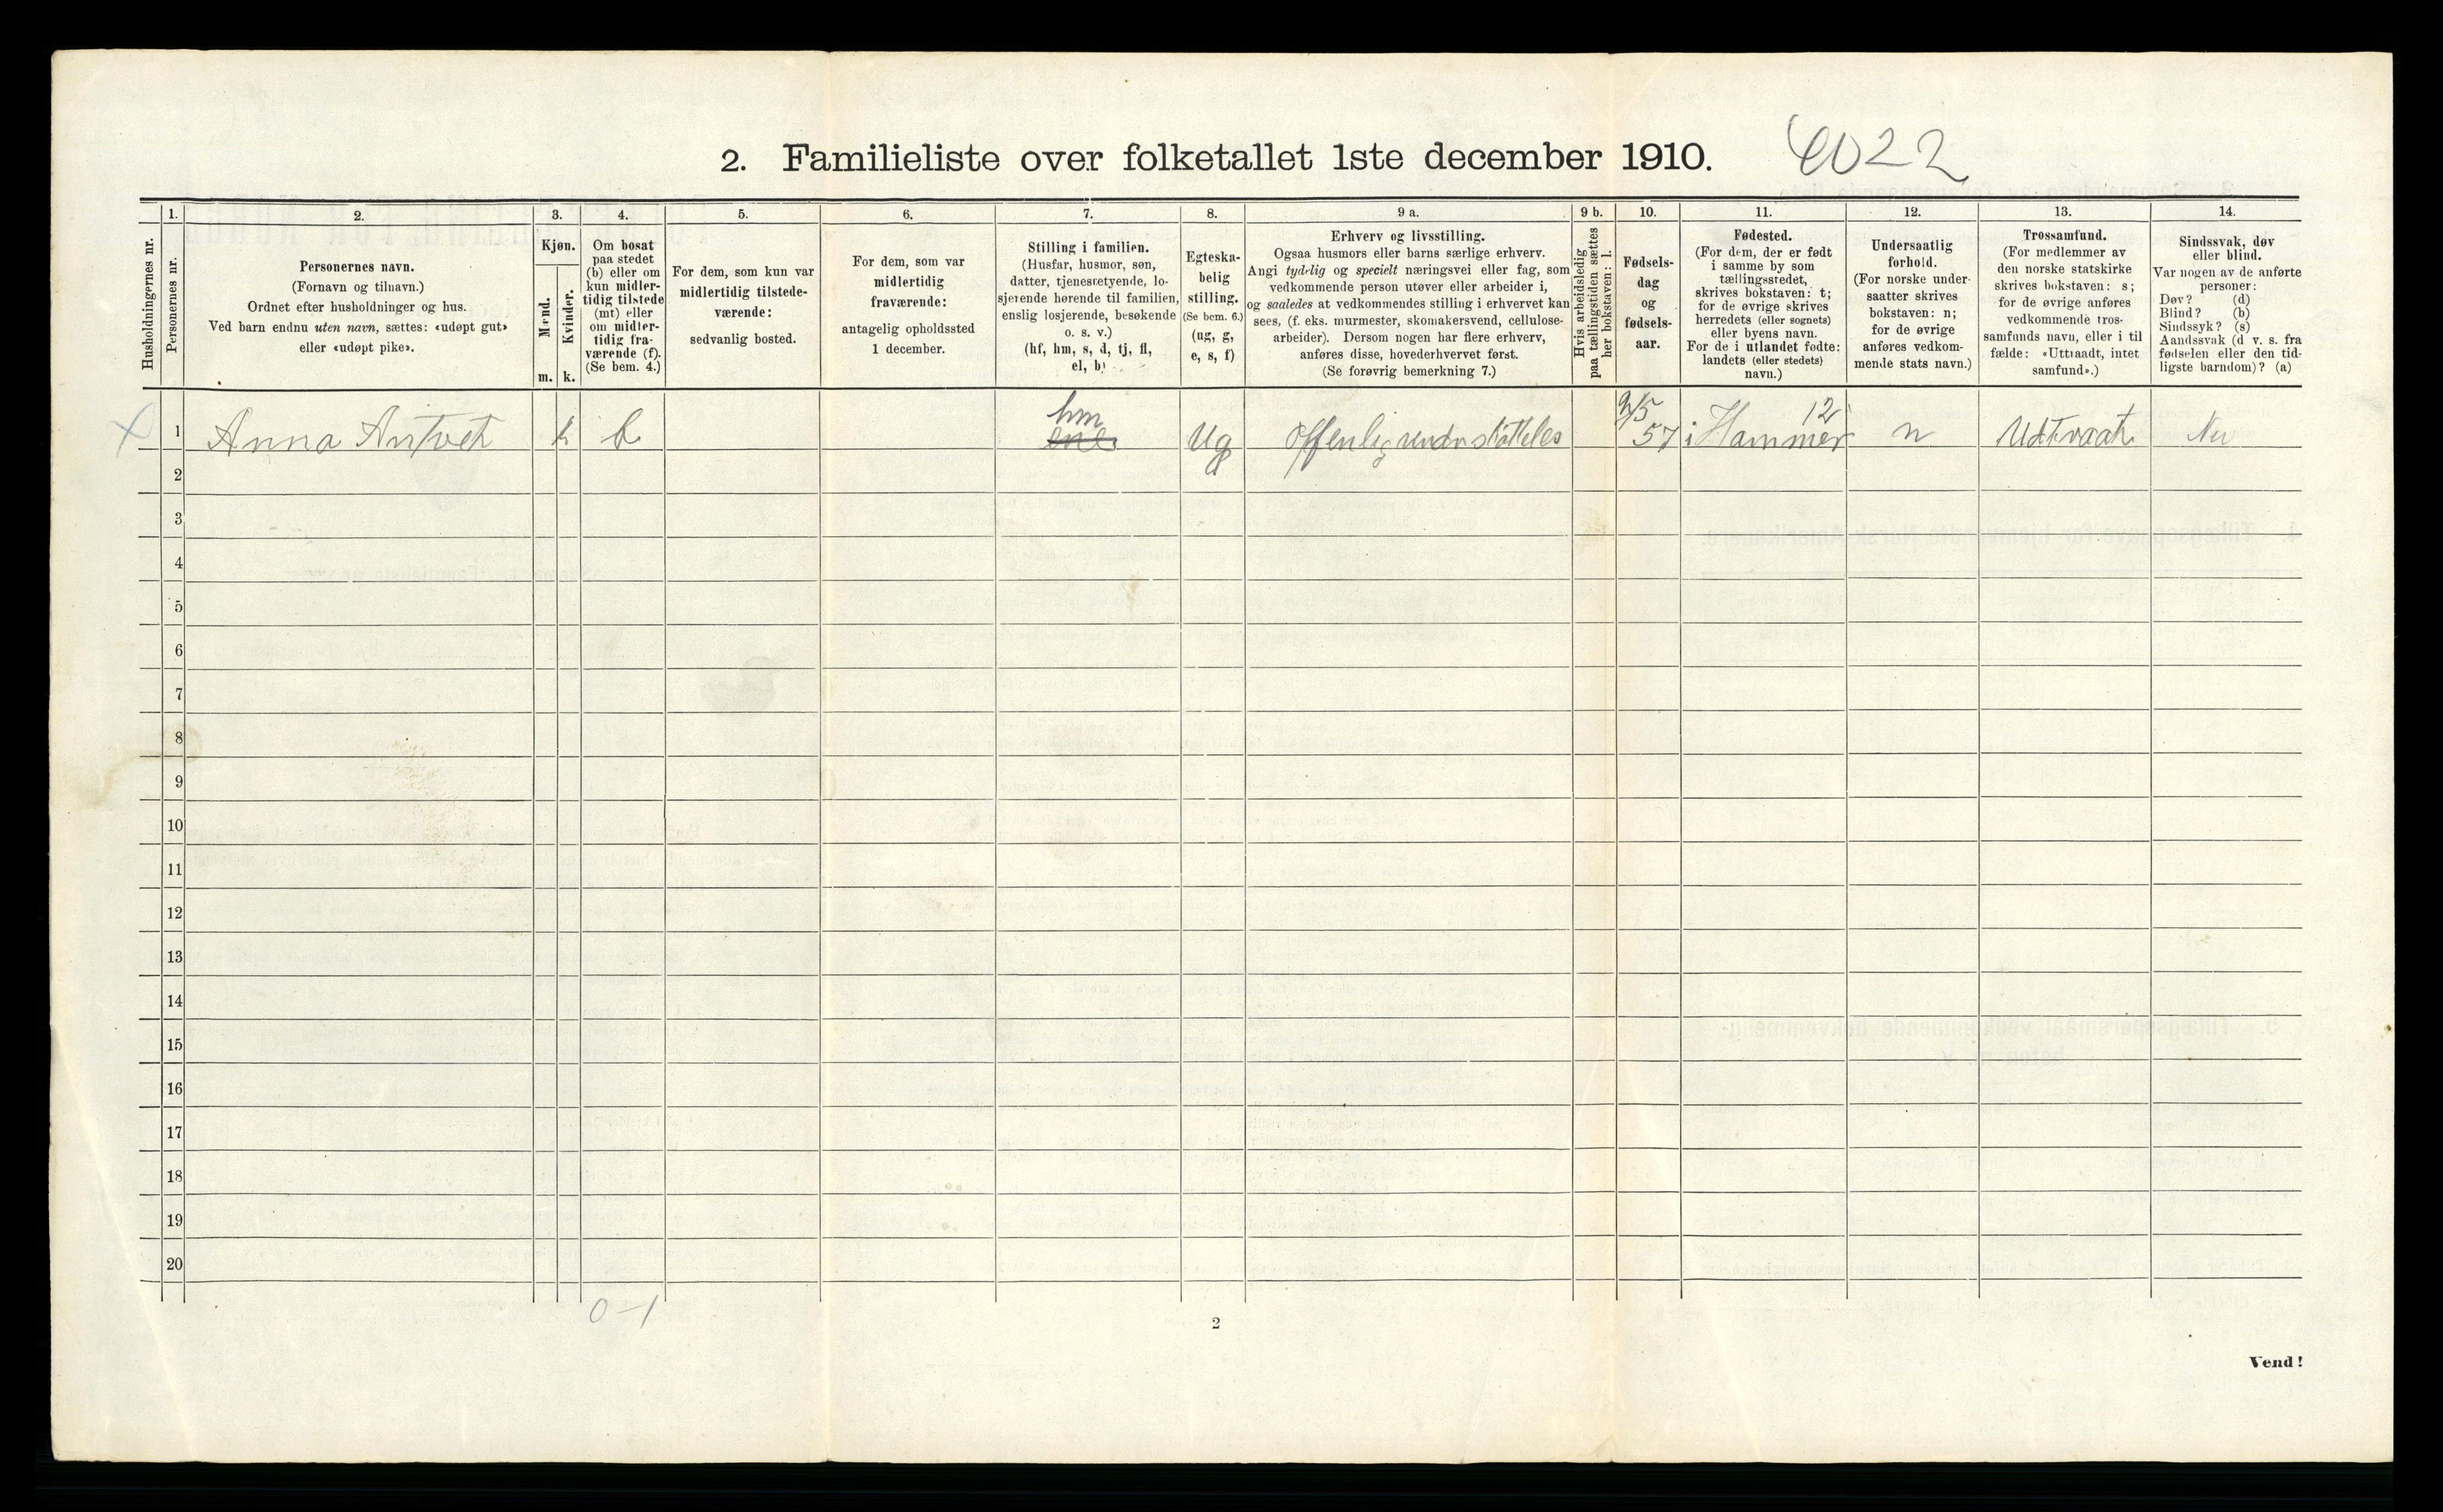 2. Familieliste over folketallet 1ste december 1910.
1. 2. 3. 4. 5. 6. 7. 8. 9 a. 9 b. 10. 11. 12. 13. 14.
Husholdningernes nr.
Personernes nr.
Personernes navn.
(Fornavn og tilnavn.)
Ordnet efter husholdninger og hus.
Ved barn endnu uten navn, sættes: «udøpt gut»
eller «udøpt pike».
Kjøn.
Mænd.
Kvinder.
m. k.
Om bosat
paa stedet
(b) eller om
kun midler-
tidig tilstede
(mt) eller
om midler-
tidig fra-
værende (f).
(Se bem. 4.)
For dem, som kun var
midlertidig tilstede-
værende:
sedvanlig bosted.
For dem, som var
midlertidig
fraværende:
antagelig opholdssted
1 december.
Stilling i familien.
(Husfar, husmor, søn,
datter, tjenestetyende, lo-
sjerende hørende til familien,
enslig losjerende, besøkende
o. s. v.)
(hf, hm, s, d, tj, fl,
el, b)
Egteska-
belig
stilling.
(Se bem. 6.)
(ug, g,
e, s, f)
Erhverv og livsstilling.
Ogsaa husmors eller barns særlige erhverv.
Angi tydelig og specielt næringsvei eller fag, som
vedkommende person utøver eller arbeider i,
og saaledes at vedkommendes stilling i erhvervet kan
sees, (f. eks. murmester, skomakersvend, cellulose-
arbeider). Dersom nogen har flere erhverv,
anføres disse, hovederhvervet først.
(Se forøvrig bemerkning 7.)
Hvis arbeidsledig
paa tællingstiden sættes
her bokstaven: l.
Fødsels-
dag
og
fødsels-
aar.
Fødested.
(For dem, der er født
i samme by som
tællingsstedet,
skrives bokstaven: t;
for de øvrige skrives
herredets (eller sognets)
eller byens navn.
For de i utlandet fødte:
landets (eller stedets)
navn.)
Undersaatlig
forhold.
(For norske under-
saatter skrives
bokstaven: n;
for de øvrige
anføres vedkom-
mende stats navn.)
Trossamfund.
(For medlemmer av
den norske statskirke
skrives bokstaven: s;
for de øvrige anføres
vedkommende tros-
samfunds navn, eller i til
fælde: «Uttraadt, intet
samfund».)
Sindssvak, døv
eller blind.
Var nogen av de anførte
personer:
Døv? (d)
Blind? (b)
Sindssyk? (s)
Aandssvak (d. v. s. fra
fødselen eller den tid-
ligste barndom)? (a)
hm 12
1 Anna k b Ug 57 i Hammer n
2
3
4
5
6
7
8
9
10
11
12
13
14
15
16
17
18
19
20
0-1
2
Vend!